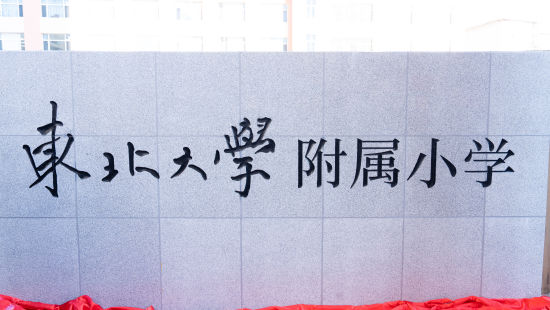 東北大學附属小学